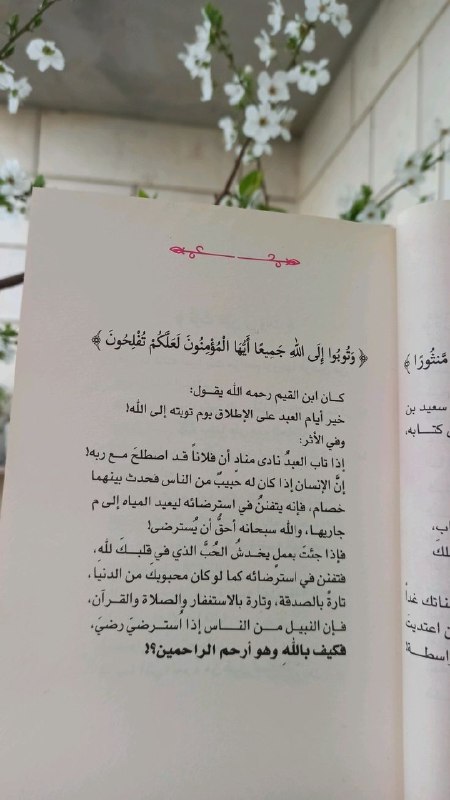 ﴿ وَتُوبُوا إِلَى اللَّهِ جَمِيعًا أَيُّهَا الْمُؤْمِنُونَ لَعَلَّكُمْ تُفْلِحُونَ ﴾
كان ابن القيم رحمه الله يقول:
خير أيام العبد على الإطلاق يوم توبته إلى الله!
وفي الأثر:
إذا تاب العبدُ نادى منادٍ أن فلاناً قد اصطلحَ مع ربه!
إنَّ الإنسان إذا كان له حبيبٌ من الناس فحدث بينهما
خصام، فإنه يتفننُ في استرضائه ليعيد المياه إلى م
جاريها، والله سبحانه أحقُّ أن يُسترضى!
فإذا جئتَ بعملٍ يخدشُ الحُبَّ الذي في قلبكَ للهِ،
فتفنن في استرضائه كما لو كان محبوبك من الدنيا،
تارةً بالصدقة، وتارة بالاستغفار والصلاة والقرآن،
فإن النبيل من الناس إذا اُسترضيَ رضيَ،
فكيف باللهِ وهو أرحم الراحمين؟!
مَّنثُورًا ﴾
سعيد بن
كتابه،
لك
ناتك غداً
اعتديتَ